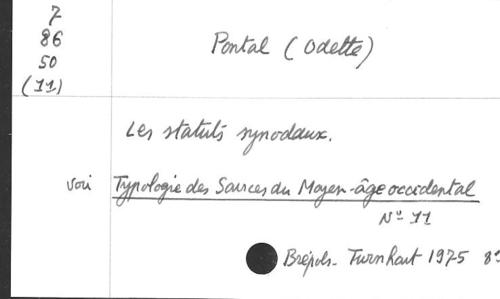 7
86
50
(11)
Pontal (Odette)
Les statuts synodaux.
voir Typologie des Sources du Moyen-âge occidental
Nº 11
Brépols - Turnhout 1975 8º